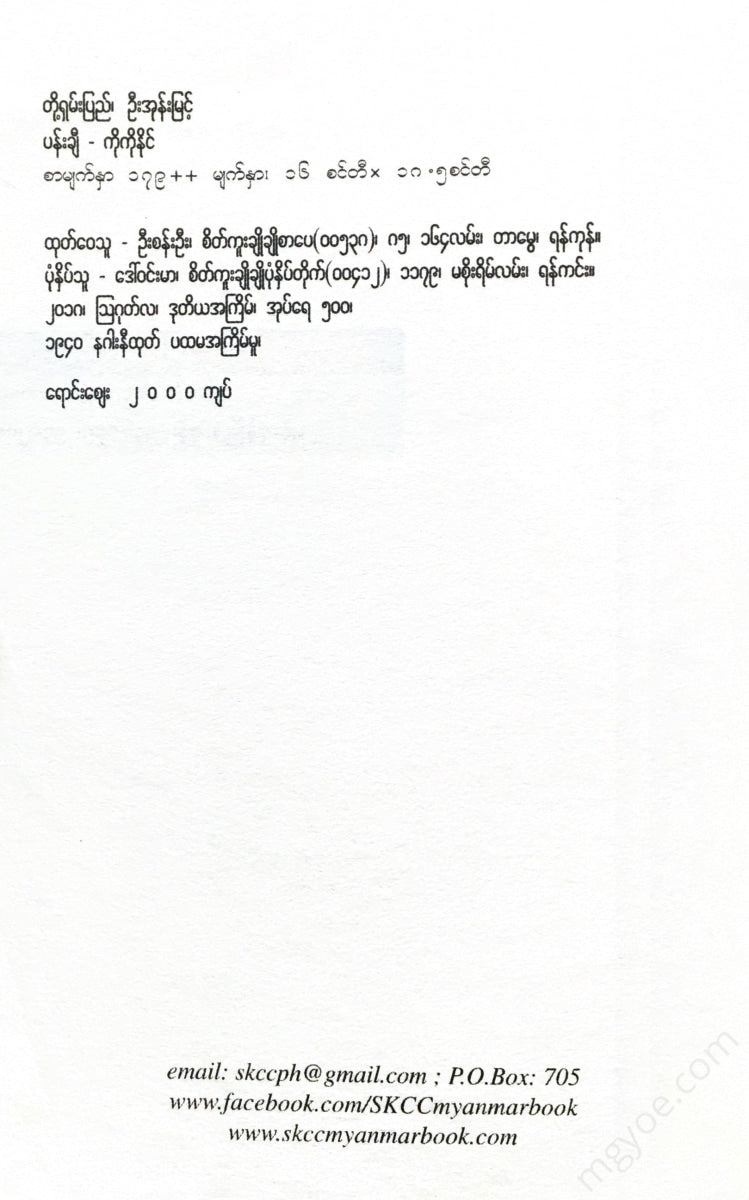 တို့ရှမ်းပြည်၊ ဦးအုန်းမြင့်
ပန်းချီ - ကိုကိုနိုင်
စာမျက်နှာ ၁၇၉++ မျက်နှာ၊ ၁၆ စင်တီ× ၁၈.၅စင်တီ
ထုတ်ဝေသူ - ဦးစန်းဦး၊ စိတ်ကူးချိုချိုစာပေ(၀၀၅၃၈)၊ ၈၅၊ ၁၆၄လမ်း၊ တာမွေ၊ ရန်ကုန်။
ပုံနှိပ်သူ - ဒေါ်ဝင်းမာ၊ စိတ်ကူးချိုချိုပုံနှိပ်တိုက်(၀၀၄၁၂)၊ ၁၁၇၉၊ မစိုးရိမ်လမ်း၊ ရန်ကင်း။
၂၀၁၈၊ ဩဂုတ်လ၊ ဒုတိယအကြိမ်၊ အုပ်ရေ ၅၀၀၊
၁၉၄၀ နဂါးနီထုတ် ပထမအကြိမ်မူ၊
ရောင်းဈေး ၂၀၀၀ကျပ်
email: skccph@gmail.com ; P.O.Box: 705
www.facebook.com/SKCCmyanmarbook
www.skccmyanmarbook.com
mgyoe.com